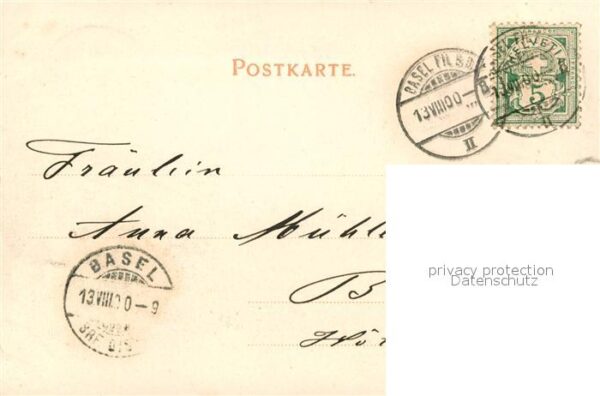 POSTKARTE.
BASEL FIL.
13 VIII 00
II
HELVETIA
5
Fräulein
Anna Mühl
B
BASEL
13 VIII 00-9
privacy protection
Datenschutz